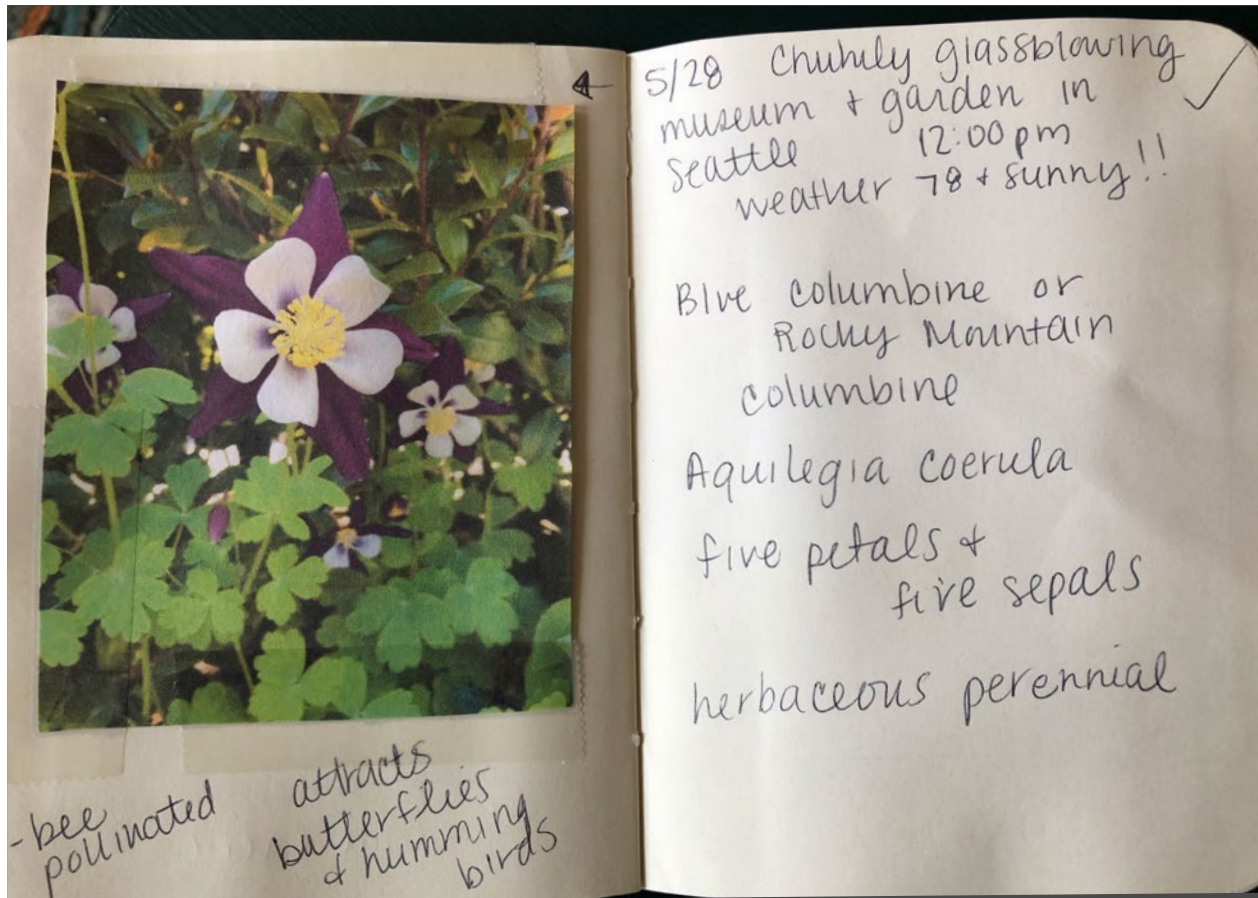 - bee
pollinated
attracts
butterflies
& humming
birds
5/28 Chuhily glassblowing
museum & garden in
Seattle 12:00pm
weather 78 & sunny!!
Blue columbine or
Rocky Mountain
columbine
Aquilegia coerula
five petals &
five sepals
herbaceous perennial